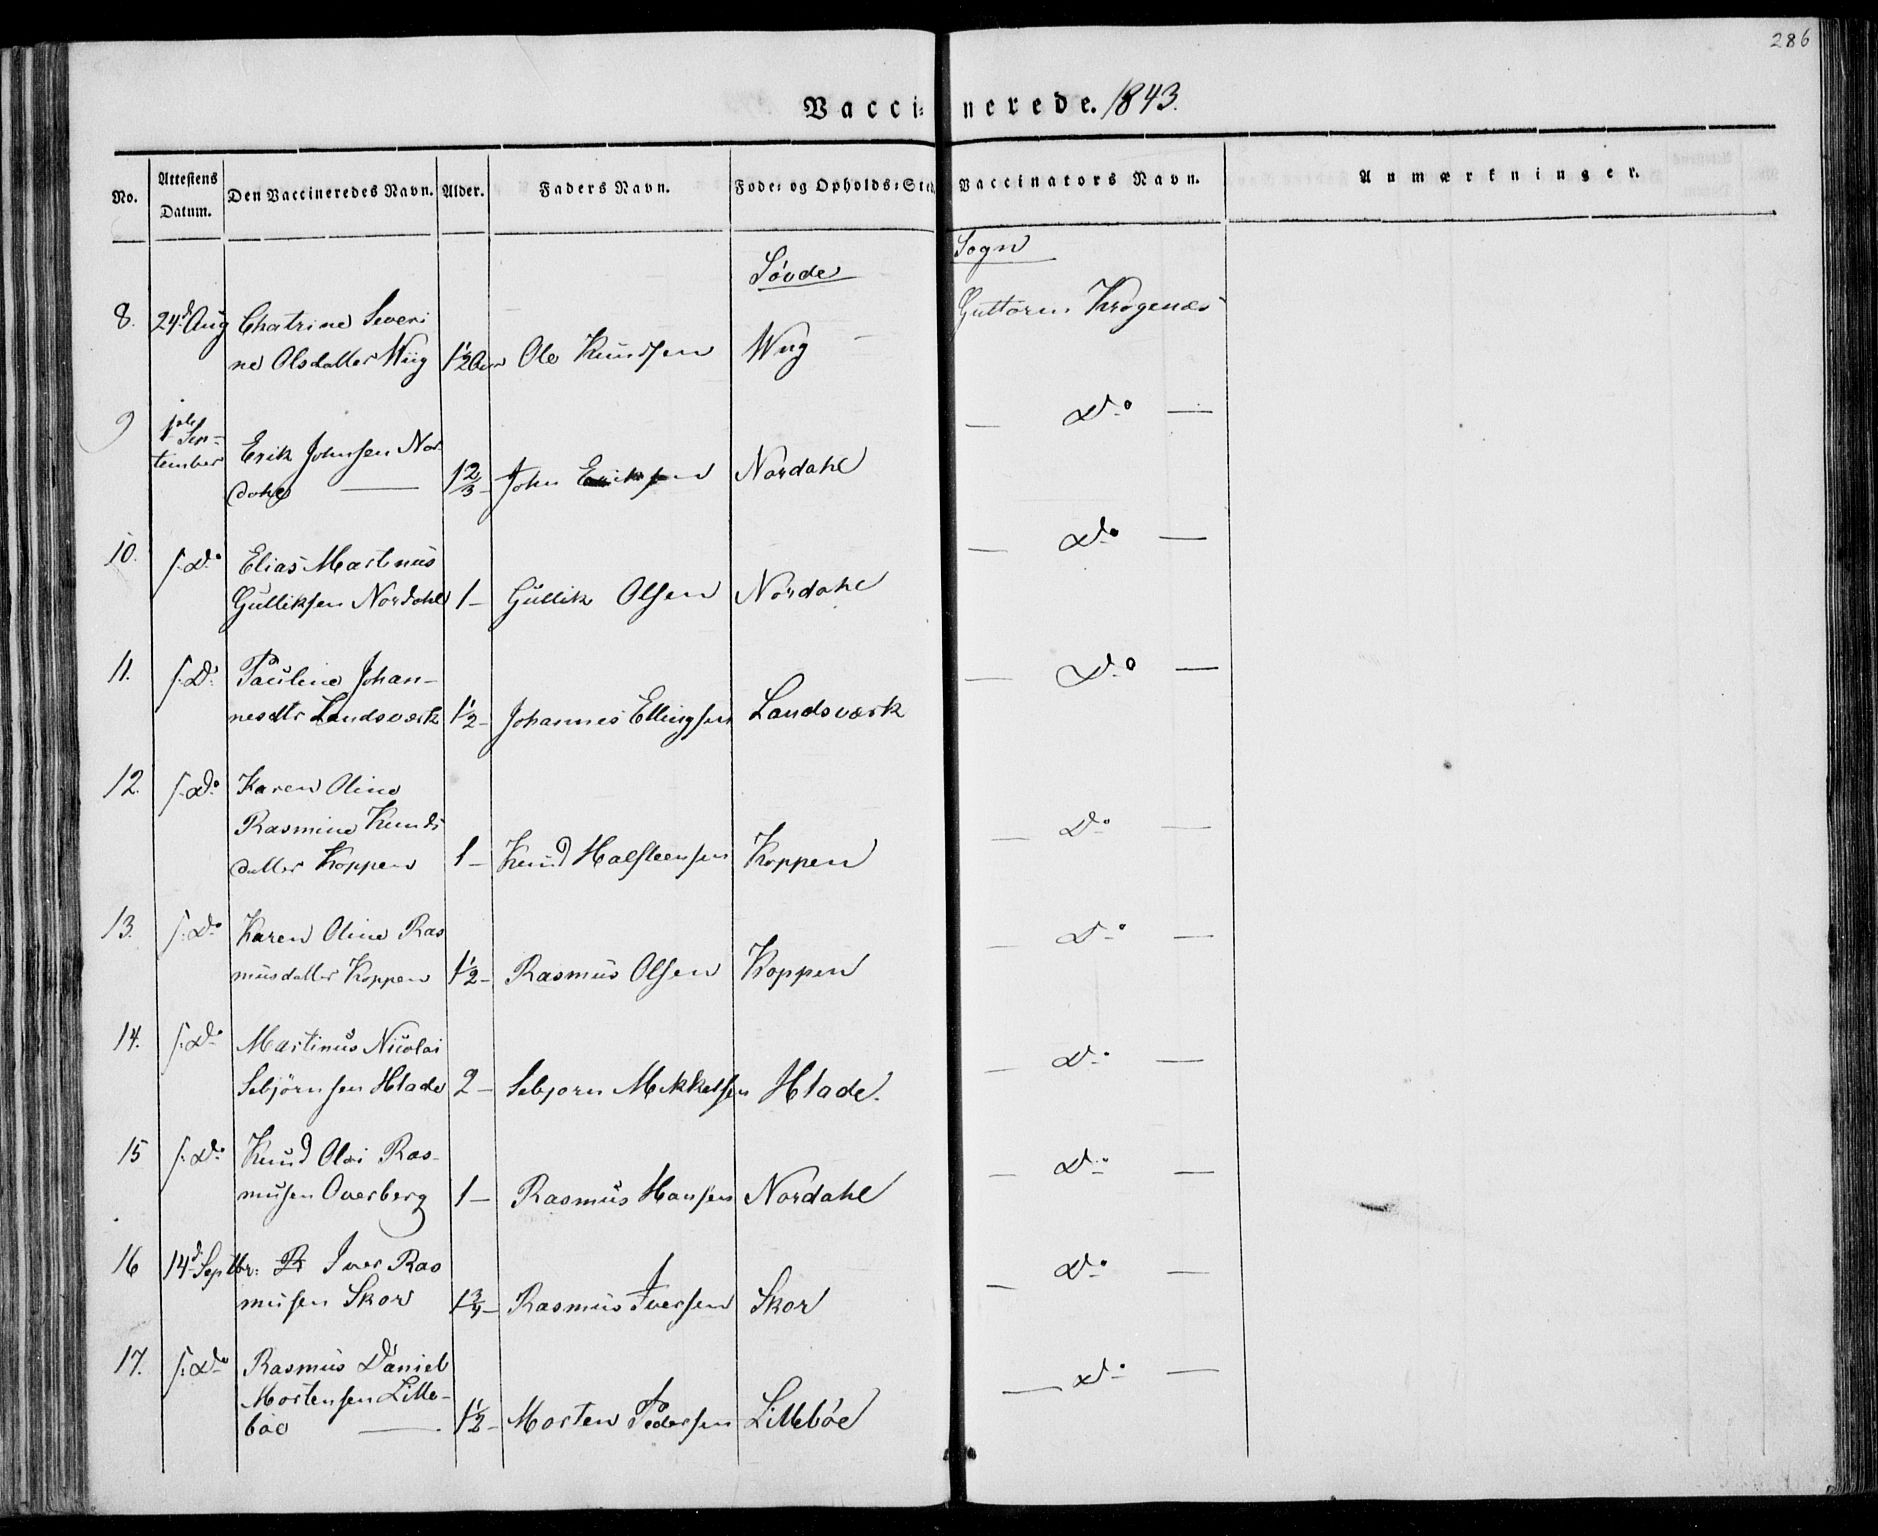 286
Vaccinerede. 1843.
No. Attestens Datum. Den Vaccineredes Navn. Alder. Faders Navn. Føde- og Opholds-Sted Vaccinators Navn. Anmærkninger.
Søvde Sogn
8. 24d Aug Chatrine Severi Guttorm Krogenæs
ne Olsdatter Wiig 1½ Aar Ole Knudsen Wiig
9 1ste Sep- — Do —
tember Erik Johnsen Nor
dahl — 1 2/3 - John Eriksen Nordahl
10. s. Do Elias Martinus — Do —
Gulliksen Nordahl 1 - Gullik Olsen Nordahl
11. s. Do Pauline Johan- — Do —
nesdtr Landsværk 1½ - Johannes Ellingsen Landsværk
12. s. Do Karen Oline
Rasmine Knuds — Do —
datter Koppen 1 - Knud Halsteensen Koppen
13. s. Do Karen Oline Ras — Do —
musdatter Koppen 1½ - Rasmus Olsen Koppen
14. s. Do Martinus Nicolai — Do —
Sebjörnsen Hlade 2 - Sebjorn Mikkelsen Hlade.
15 s. Do Knud Olai Ras- — Do —
musen Overberg 1 - Rasmus Hansen Nordahl
16 14d Septbr: R Iver Ras — Do —
musen Skor 1¾ - Rasmus Iversen Skor
17. s. Do Rasmus Daniel — Do —
Mortensen Lille-
böe — 1½ - Morten Pedersen Lilleböe